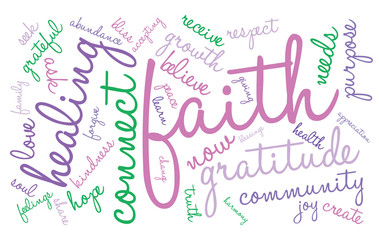 seek
grateful
abundance
bliss
accepting
receive
respect
ask
growth
needs
purpose
healing
connect
believe
peace
giving
faith
love
family
forgive
learn
kindness
change
now
blessing
health
appreciation
gratitude
soul
feelings
share
hope
truth
harmony
community
joy
create